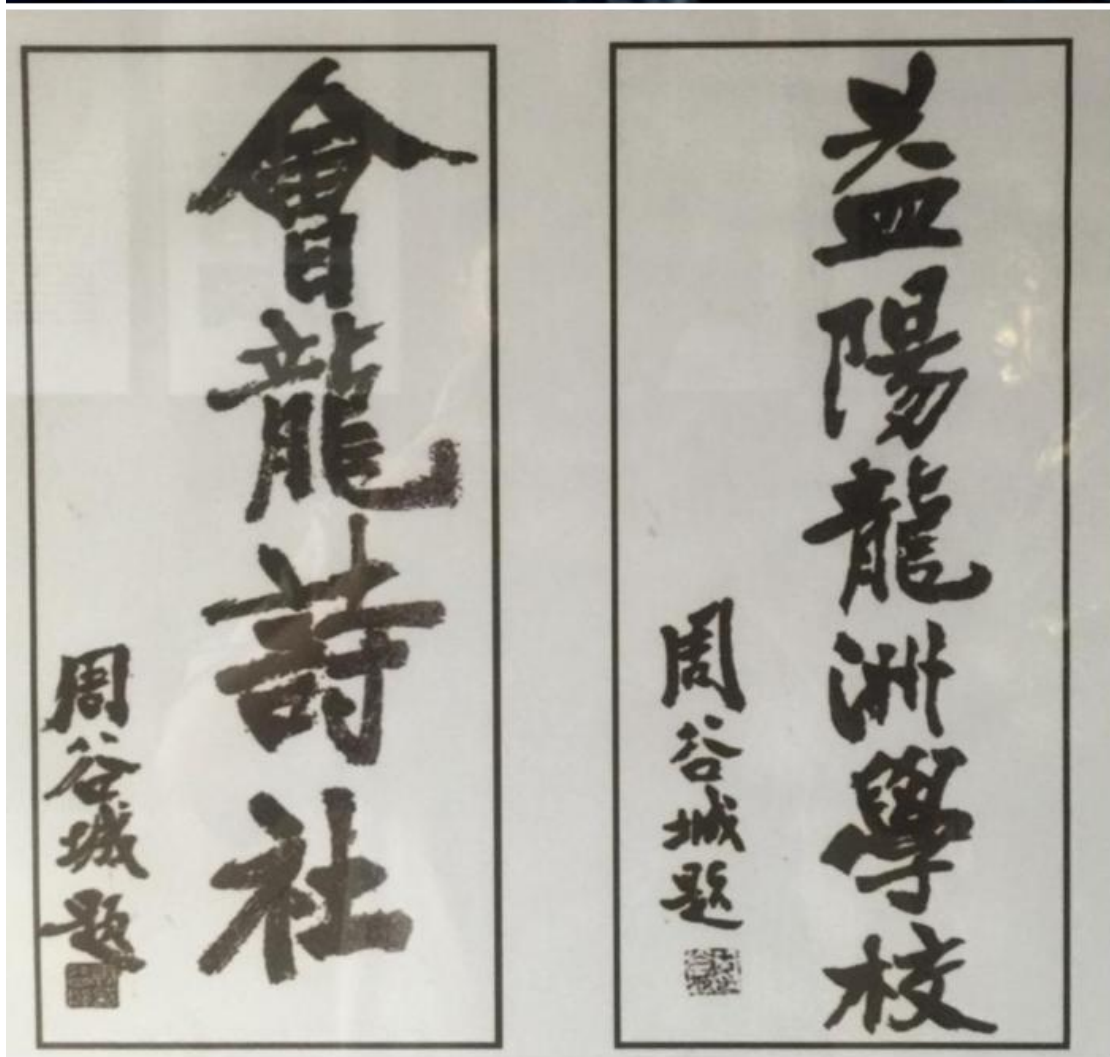 益陽龍洲學校
周谷城題
會龍詩社
周谷城題